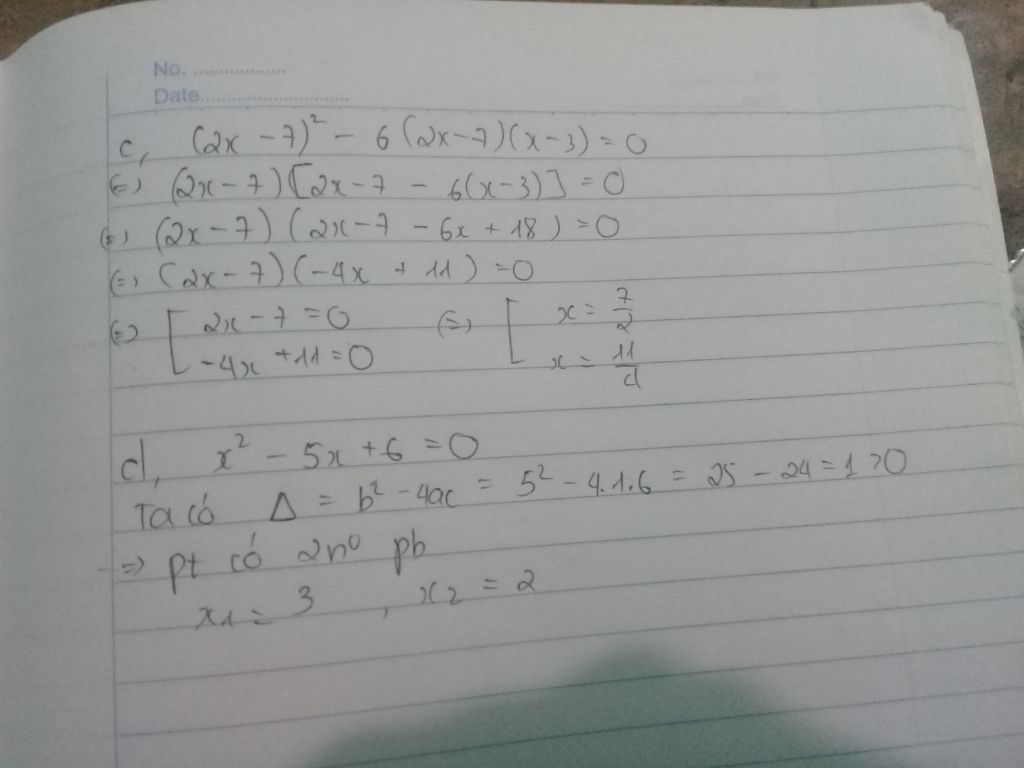 No. ..................
Date..............................
c, (2x - 7)² - 6(2x-7)(x-3) = 0
(=) (2x-7)[2x-7 - 6(x-3)] = 0
(=) (2x-7)(2x-7 - 6x + 18) = 0
(=) (2x-7)(-4x + 11) = 0
(=) [ 2x-7 = 0 (=) [ x = 7/2
-4x + 11 = 0 x = 11/4
d, x² - 5x + 6 = 0
Ta có Δ = b² - 4ac = 5² - 4.1.6 = 25 - 24 = 1 > 0
=> pt có 2 n⁰ pb
x₁ = 3 , x₂ = 2